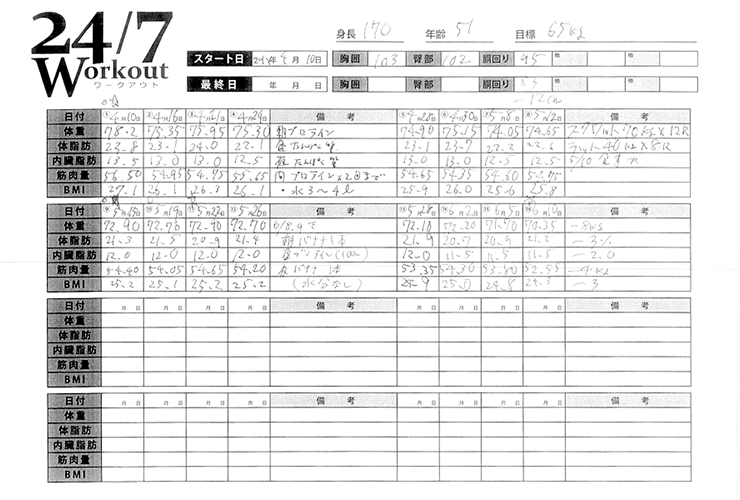 24/7
Workout
ワークアウト
身長 170 年齢 51 目標 65kg
スタート日 年 4月10日 胸囲 103 臀部 102 胴回り 95 他 他
最終日 年 月 日 胸囲 臀部 胴回り 83 他 他
-12cm
日付 ①4月10日 ②4月16日 ③4月 日 ④4月24日 備考 ⑤4月28日 ⑥4月30日 ⑦5月 日 ⑧5月12日 備考
体重 78.2 75.35 75.95 75.30 朝プロテイン 74.90 75.15 74.05 74.65 スクワット70kg×12R
体脂肪 23.8 23.1 24.0 22.1 昼たんぱく質 23.1 23.7 22.2 22.6 40kg×8R
内臓脂肪 13.5 13.0 13.0 12.5 夜たんぱく質 13.0 13.0 12.5 12.5 5/10
筋肉量 56.50 54.95 54.75 55.65 間プロテイン×2回まで 54.65 54.35 54.60 54.75
BMI 27.1 26.1 26.3 26.1 ・水3~4ℓ 25.9 26.0 25.6 25.8
日付 ⑨5月15日 ⑩5月19日 ⑪5月22日 ⑫5月26日 備考 ⑬5月28日 ⑭6月2日 ⑮6月5日 ⑯6月10日 備考
体重 72.90 72.70 72.70 72.70 6/8.9で 72.10 72.20 71.70 70.35 -8kg
体脂肪 21.3 21.5 20.9 21.4 朝バナナ1本 21.9 20.7 20.9 21.2 -3%
内臓脂肪 12.0 12.0 12.0 12.0 昼プロテイン(100cc) 12.0 11.5 11.5 11.5 -2.0
筋肉量 54.40 54.05 54.65 54.20 夜バナナ1本 53.35 54.30 53.80 52.55 -4kg
BMI 25.2 25.1 25.2 25.2 (水分なし) 24.9 25.0 24.8 24.3 -3
日付 月 日 月 日 月 日 月 日 備考 月 日 月 日 月 日 月 日 備考
体重
体脂肪
内臓脂肪
筋肉量
BMI
日付 月 日 月 日 月 日 月 日 備考 月 日 月 日 月 日 月 日 備考
体重
体脂肪
内臓脂肪
筋肉量
BMI